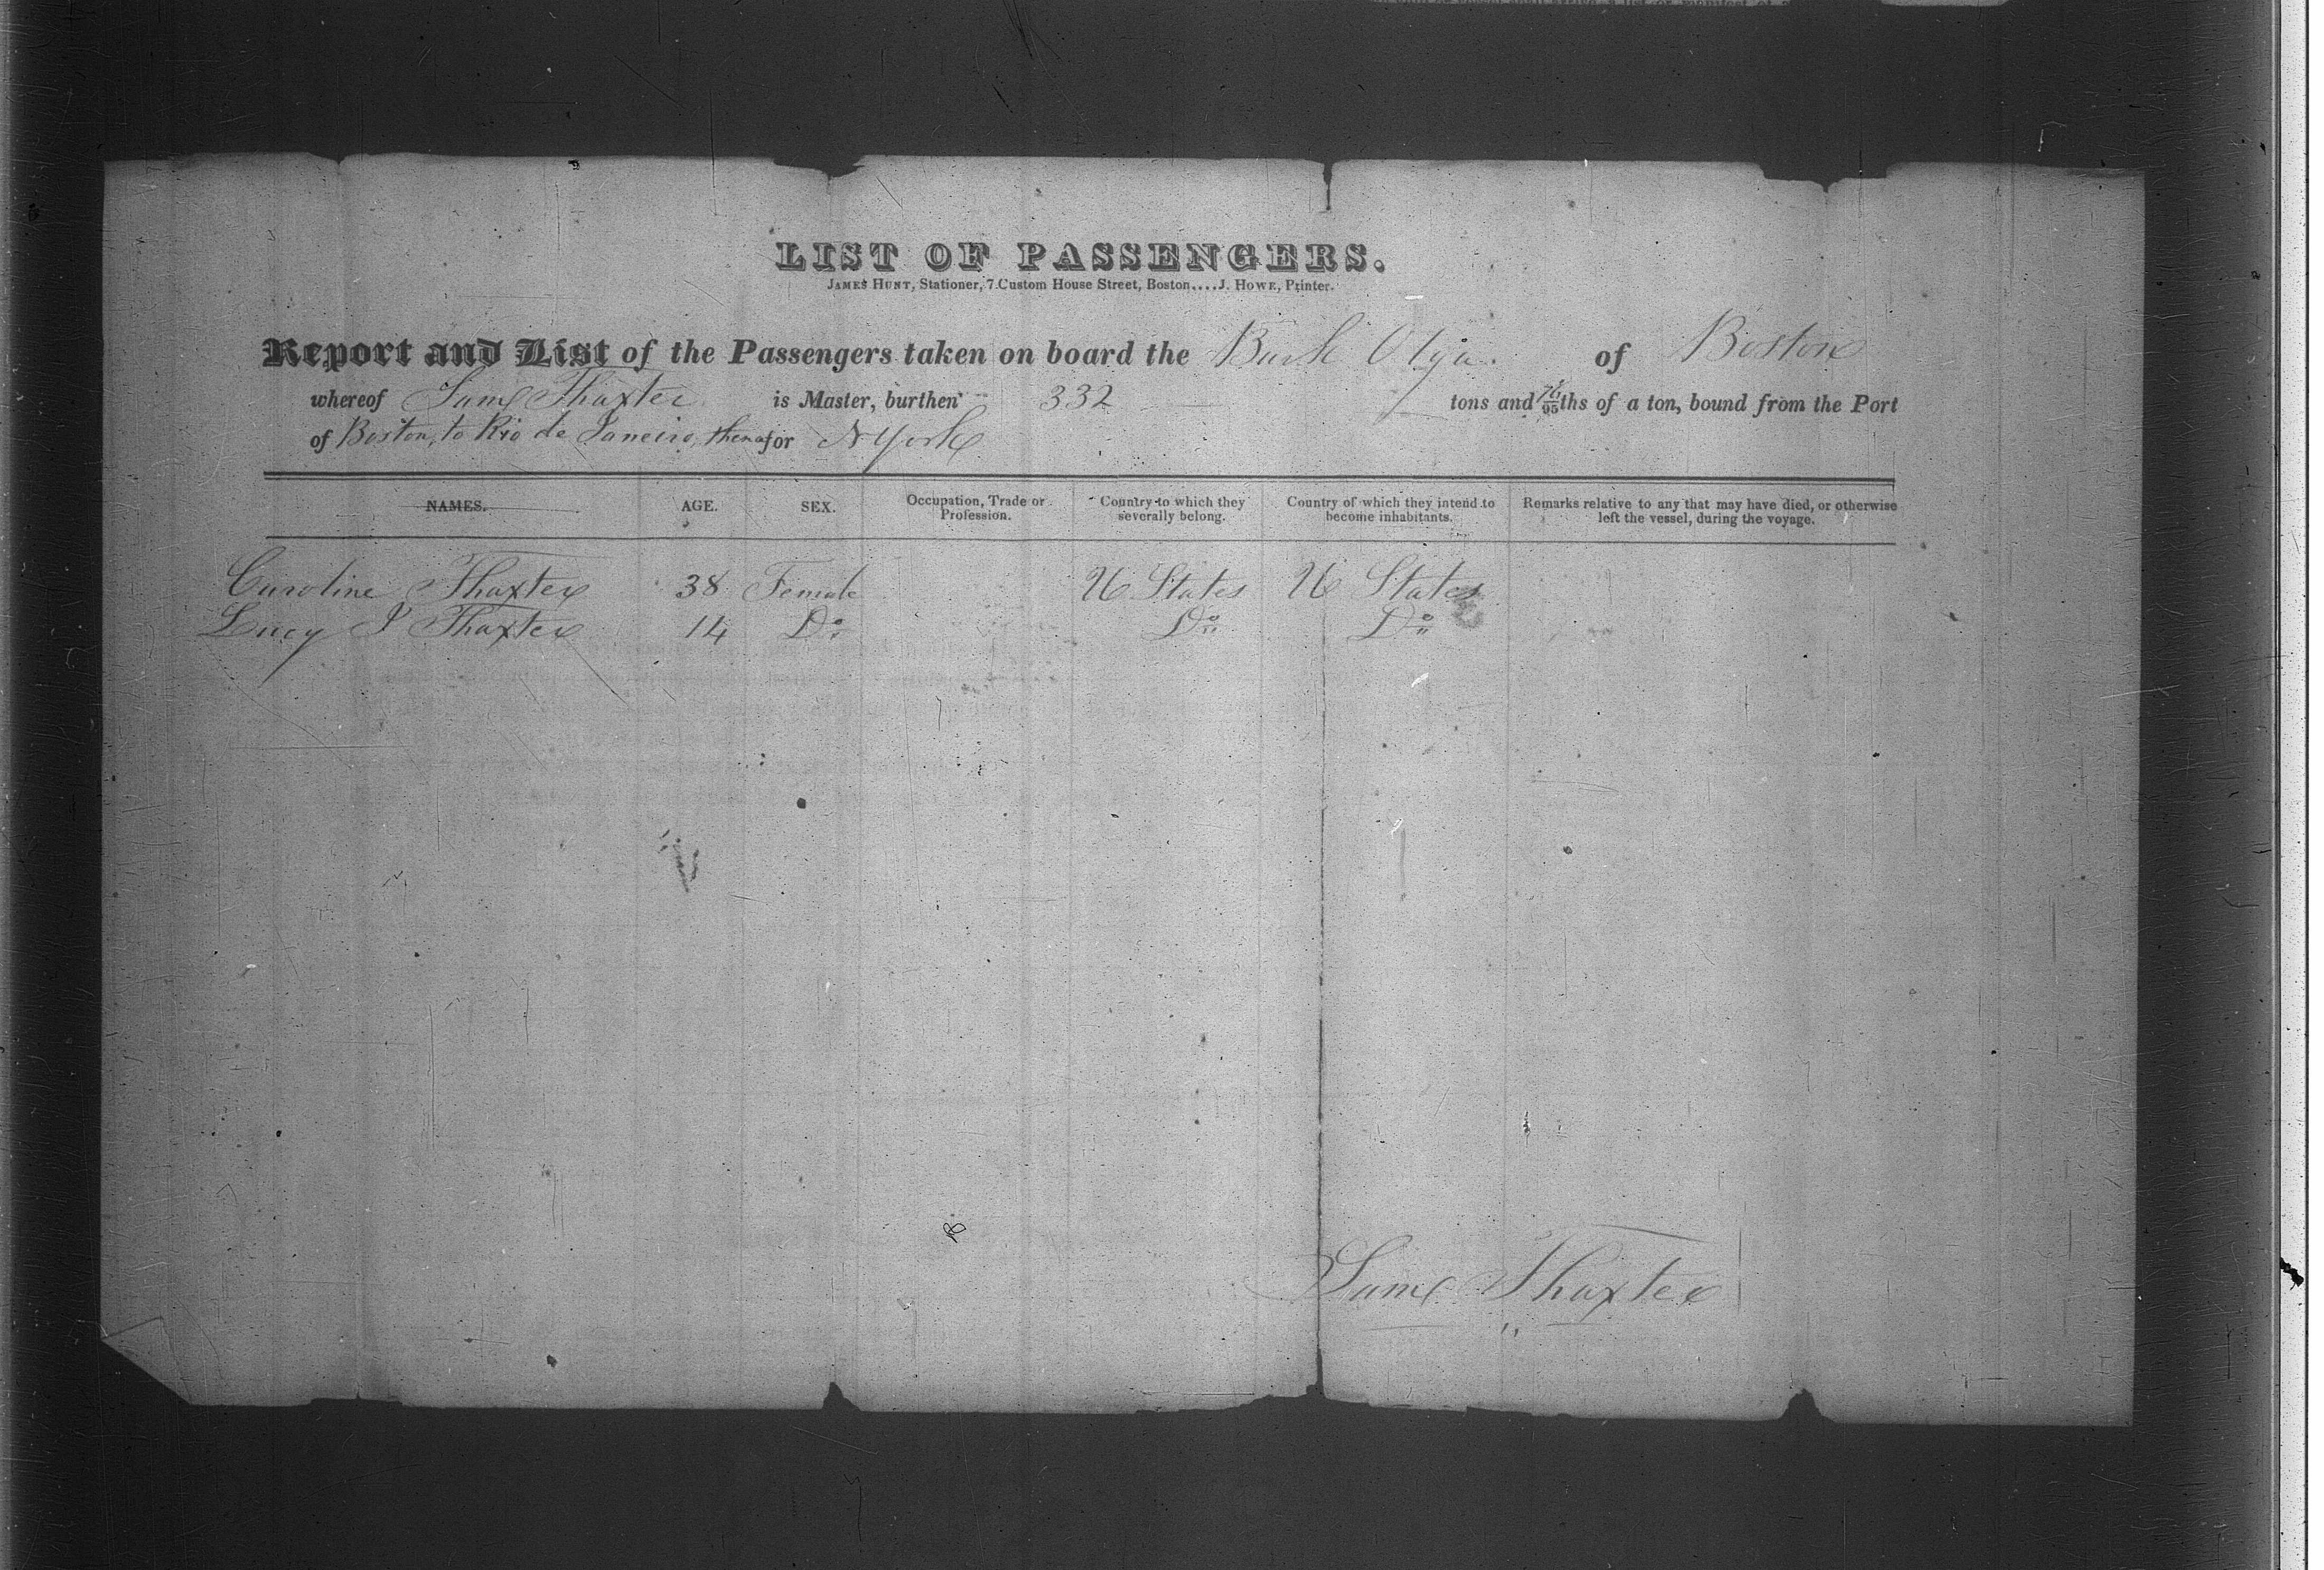 LIST OF PASSENGERS.
JAMES HUNT, Stationer, 7 Custom House Street, Boston....J. HOWE, Printer.
Report and List of the Passengers taken on board the Bark Olga. of Boston
whereof Saml Thaxter is Master, burthen 332 tons and 76/95ths of a ton, bound from the Port
of Boston, to Rio de Janeiro, then for N York
NAMES. AGE. SEX. Occupation, Trade or Profession. Country to which they severally belong. Country of which they intend to become inhabitants. Remarks relative to any that may have died, or otherwise left the vessel, during the voyage.
Caroline Thaxter 38 Female U States U States
Lucy J Thaxter 14 Do Do Do
Saml Thaxter